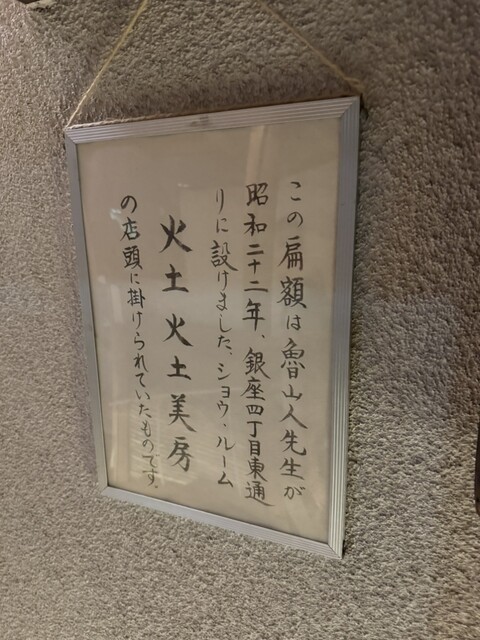 この扁額は魯山人先生が
昭和二十二年、銀座四丁目東通
りに設けました、ショウ・ルーム
火土火土美房
の店頭に掛けられていたものです。